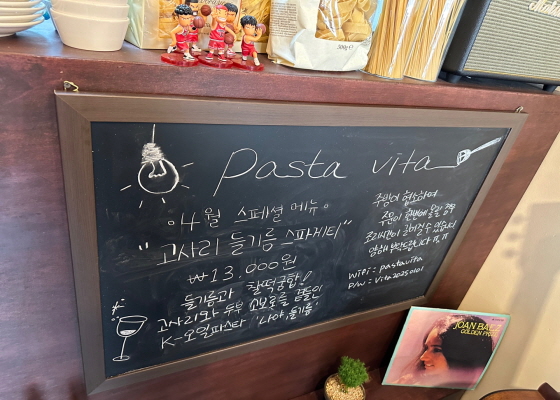 Pasta vita
◦4월 스페셜 메뉴◦
"고사리 들기름 스파게티"
₩13.000원
들기름과 찰떡궁합!
고사리와 두부 소보로를 곁들인
K-오일파스타 '나야, 들기름!'
주방이 협소하여
주문이 한번에 몰릴 경우
조리시간이 길어질 수 있습니다
양해 부탁드립니다 ㅠ.ㅠ
WiFi : pastavita
P/W : Vita20250101
JOAN BAEZ
GOLDEN PRIZE
500g